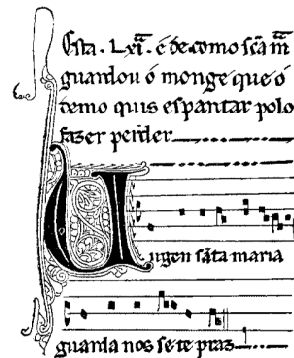 Esta .Lxi. é de como scã mã
guardou o monge que o
demo quis espantar polo
fazer perder
Uirgen santa maria
guarda nos se te praz